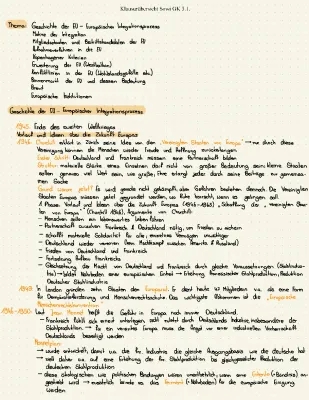 Klausurübersicht Sowi GK 3.1.
Thema: Geschichte der EU - Europäischer Integrationsprozess
Motive der Integration
Mitgliedstaaten und Beitrittskandidaten der EU
Aufnahmeverfahren in die EU
Kopenhagener Kriterien
Erweiterung der EU (Westbalkan)
Konfliktlinien in der EU
Binnenmarkt der EU und dessen Bedeutung
Brexit
Europäische Institutionen
Geschichte der EU - Europäischer Integrationsprozess
1945: Ende des zweiten Weltkrieges
Verlauf und Ideen über die Zukunft Europas
1946: Churchill erklärt in Zürich seine Idee von den „Vereinigten Staaten von Europa" → nur durch diese
Vereinigung können die Menschen wieder Freude und Hoffnung zurückerlangen
Erster Schritt: Deutschland und Frankreich müssen eine Partnerschaft bilden
Struktur: materielle Stärke eines Einzelnen darf nicht von großer Bedeutung sein; kleine Staaten
zählen genauso viel Wert sein, wie große; Ehre erlangt jeder durch seine Beiträge zur gemeinsa-
men Sache
Grund warum jetzt? Es wird gerade nicht gekämpft, aber Gefahren bestehen dennoch. Die Vereinigten
Staaten Europas müssen jetzt gegründet werden, wo alle herrscht, wenn es gelingen soll.
1. Phase: Verlauf und Ideen über die Zukunft Europas (1946-1963), „Schaffung der „vereinigten Staa-
ten von Europa" (Churchill 1946), Argumente von Churchill:
- Menschen sollen ein lebenswertes Leben führen
- Partnerschaft zwischen Frankreich & Deutschland nötig, um Frieden zu sichern
- schafft materielle Solidarität für alle, einzelnes Versagen unwichtiger
- Deutschland wieder vereinen (kein Machtkampf zwischen Amerika & Russland)
- Frieden von Deutschland und Frankreich
- Fortsetzung Aufbau Frankreichs
- Gleichsetzung der Macht von Deutschland und Frankreich durch gleiche Voraussetzungen
Deutscher Stahlindustrie
1949: In London gründen zehn Staaten den Europarat. Er dient heute 47 Mitgliedern v.a. als eine Form
für Demokratieförderung und Menschenrechtsschutz. Das wichtigste Abkommen ist die „Europäische
Menschenrechtskonvention"
1946-1950: Laut Jean Monnet treibt die Gefahr in Europa noch immer Deutschland.
- Frankreich fühlt sich erneut unterlegen, nicht zuletzt durch Deutschlands Industrie, insbesondere der
Stahlproduktion → für ein vereintes Europa muss die Angst vor einer industriellen Vorherrschaft
Deutschlands beseitigt werden
→ wurde entwickelt, damit u.a. die frz. Industrie die gleiche Ausgangsbasis wie die deutsche hat
→ zielt daher v.a. auf eine Erhöhung der frz. Stahlproduktion bei gleichzeitiger Reduktion der
deutschen Stahlproduktion
- diese strategischen wie politischen Bedingungen wären unerlässlich, wenn eine
gestrebt wird → zusätzlich könnte es das Ferment (=Nährboden) für die europäische Einigung
werden.